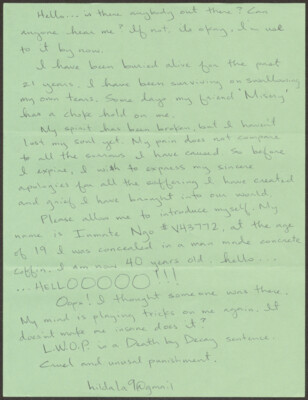 Hello... is there anybody out there? Can
anyone hear me? If not, its okay, I'm used
to it by now.
I have been buried alive for the past
21 years. I have been surviving on swallowing
my own tears. Some days my friend "Misery"
has a choke hold on me.
My spirit has been broken, but I haven't
lost my soul yet. My pain does not compare
to all the sorrows I have caused. So before
I expire, I wish to express my sincere
apologies for all the suffering I have created
and grief I have brought into our world.
Please allow me to introduce myself. My
name is Inmate Ngo # V43772, at the age
of 19 I was concealed in a man made concrete
coffin. I am now 40 years old. hello...
...HELLOOOOO!!!
Oops! I thought someone was there.
My mind is playing tricks on me again. It
doesn't make me insane does it?
L.W.O.P. is a Death by Decay sentence.
Cruel and unusual punishment.
hidala9@gmail